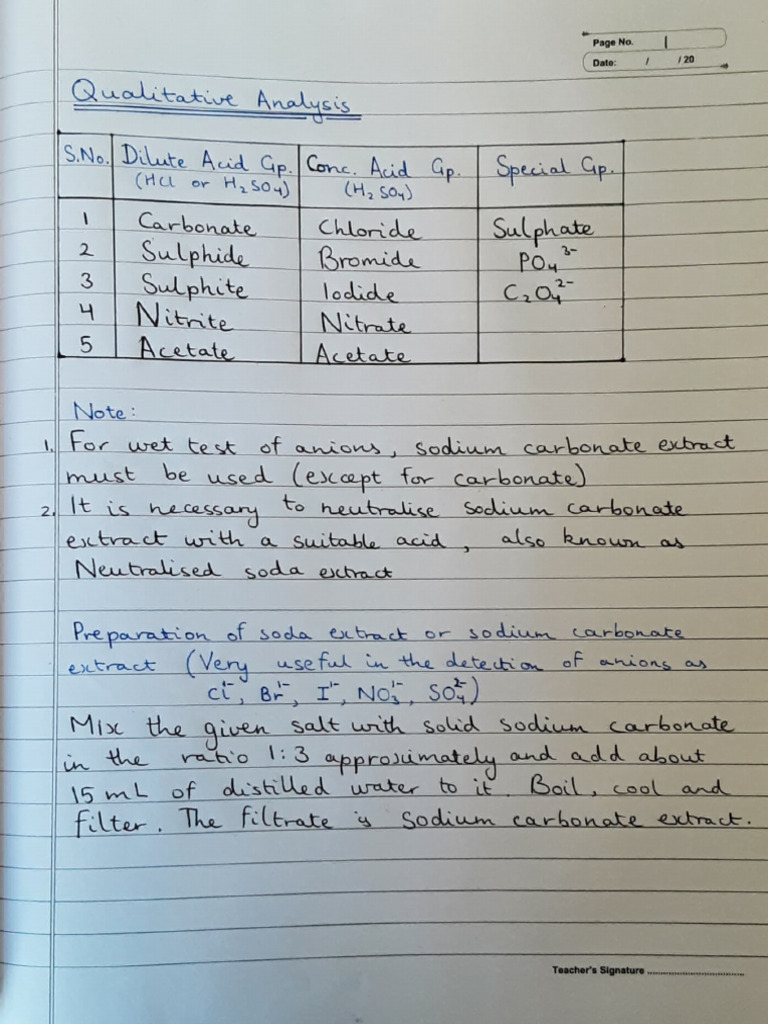 Page No. 1
Date: / / 20
Qualitative Analysis
S.No. Dilute Acid Gp. Conc. Acid Gp. Special Gp.
(HCl or H₂SO₄) (H₂SO₄)
1 Carbonate Chloride Sulphate
2 Sulphide Bromide PO₄³⁻
3 Sulphite Iodide C₂O₄²⁻
4 Nitrite Nitrate
5 Acetate Acetate
Note:
1. For wet test of anions, sodium carbonate extract
must be used (except for carbonate)
2. It is necessary to neutralise sodium carbonate
extract with a suitable acid, also known as
Neutralised soda extract
Preparation of soda extract or sodium carbonate
extract (Very useful in the detection of anions as
Cl¹⁻, Br¹⁻, I¹⁻, NO₃¹⁻, SO₄²⁻)
Mix the given salt with solid sodium carbonate
in the ratio 1:3 approximately and add about
15 mL of distilled water to it. Boil, cool and
filter. The filtrate is sodium carbonate extract.
Teacher's Signature ..............................